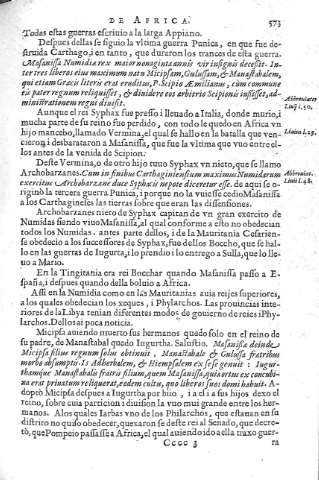 DE AFRICA.
573
Todas estas guerras escriuio a la larga Appiano.
Despues dellas se siguio la vltima guerra Punica, en que fue de-
struida Carthago, i en tanto, que duraron los trances de esta guerra.
Masanissa Numidiæ rex maior nonaginta annis vir insignis decessit. In-
ter tres liberos eius maximum natu Micipsam, Gulussam, & Manastabalem,
qui etiam Græcis literis erat eruditus, P. Scipio Æmilianus, cùm commune
iis pater regnum reliquisset, & diuidere eos arbitrio Scipionis iussisset, ad-
ministrationem regni diuisit.
Abbreuiator
Liuij l. 50.
Aunque el rei Syphax fue presso i lleuado a Italia, donde murio, i
mucha parte de su reino fue perdido, con todo le quedo en Africa vn
hijo mancebo, llamado Vermina, el qual se hallo en la batalla que ven-
cieron, i desbarataron a Masanissa, que fue la vltima que vuo entre el-
los antes de la venida de Scipion.
Liuius l. 29.
Deste Vermina, o de otro hijo tuuo Syphax vn nieto, que se llamo
Archobarzanes. Cum in finibus Carthaginiensium maximus Numidarum
exercitus Archobarzane duce Syphacis nepote diceretur esse. de aqui se o-
riginò la tercera guerra Punica, i porque no la vuiesse cedio Masanissa
a los Carthagineses las tierras sobre que eran las dissensiones.
Abbreuiat.
Liuij l. 48.
Archobarzanes nieto de Syphax capitan de vn gran exercito de
Numidas siendo viuo Masanissa, al qual conforme a esto no obedecian
todos los Numidas. antes parte dellos, i de la Mauritania Cesarien-
se obedecio a los successores de Syphax, fue dellos Boccho, que se hal-
lo en las guerras de Iugurta, i lo prendio i lo entrego a Sulla, que lo lle-
uo a Mario.
En la Tingitania era rei Bocchar quando Masanissa passo a E-
spaña, i despues quando della boluio a Africa.
Assi en la Numidia como en las Mauritanias auia reijes superiores,
a los quales obedecian los xeques, i Phylarchos. Las prouincias inte-
riores de la Libya tenian diferentes modos de gouierno de reies i Phy-
larchos. Dellos ai poca noticia.
Micipsa auiendo muerto sus hermanos quedo solo en el reino de
su padre, de Manastabal quedo Iugurtha. Salustio. Masanissa deinde
Micipsa filius regnum solus obtinuit, Manastabale & Gulussa fratribus
morbo absumptis. Is Adherbalem, & Hiempsalem ex sese genuit: Iugur-
thamque Manastabalis fratris filium, quem Masanissa, quia ortus ex concubi-
na erat priuatum reliquerat, eodem cultu, quo liberos suos domi habuit. A-
doptò Micipsa despues a Iugurtha por hijo, i a el i a sus hijos dexo el
reino, sobre cuia particion i diuision la vuo mui grande entre los her-
manos. A los quales Iarbas vno de los Philarchos, que estauan en su
districto no quiso obedecer, quexaron se deste rei al Senado, que decre-
tò, que Pompeio passasse a Africa, el qual auiendo ido a ella traxo guer-
Cccc 3
ra